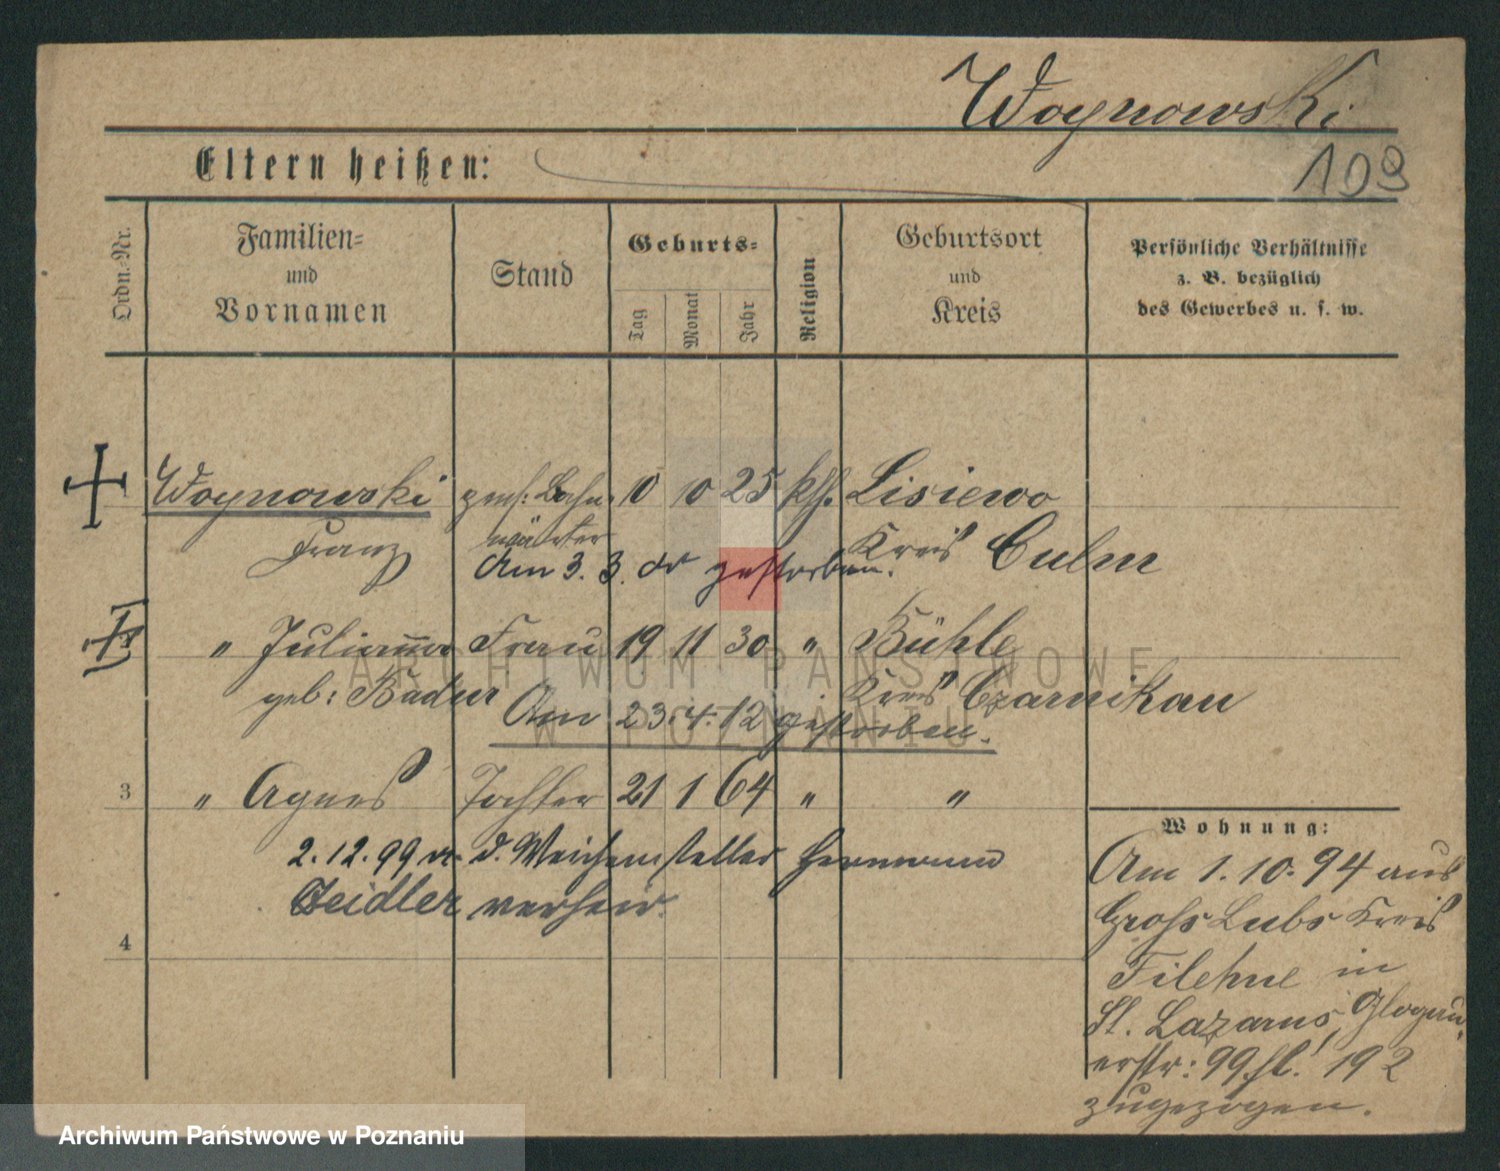 Woynowski
109
Eltern heißen:
Ordn.-Nr.
Familien-
und
Vornamen
Stand
Geburts-
Tag
Monat
Jahr
Religion
Geburtsort
und
Kreis
Persönliche Verhältnisse
z. B. bezüglich
des Gewerbes u. s. w.
Woynowski pens: Bahn- 10 10 25 kth. Lisiewo
Franz wärter Kreis Culm
Am 3. 3. 05 gestorben.
" Julianna Frau 19 11 30 " Bühle
geb: Badur Kreis Czarnikau
Am 23.4.12 gestorben.
3 " Agnes Tochter 21 1 64 " "
2.12.99 m. d. Weichensteller Hermann
Zeidler verheir.
4
Wohnung:
Am 1.10.94 aus
Gross Lubs Kreis
Filehne in
St. Lazarus, Glogau-
erstr: 99. 192
zugezogen.
ARCHIWUM PAŃSTWOWE
W POZNANIU
Archiwum Państwowe w Poznaniu